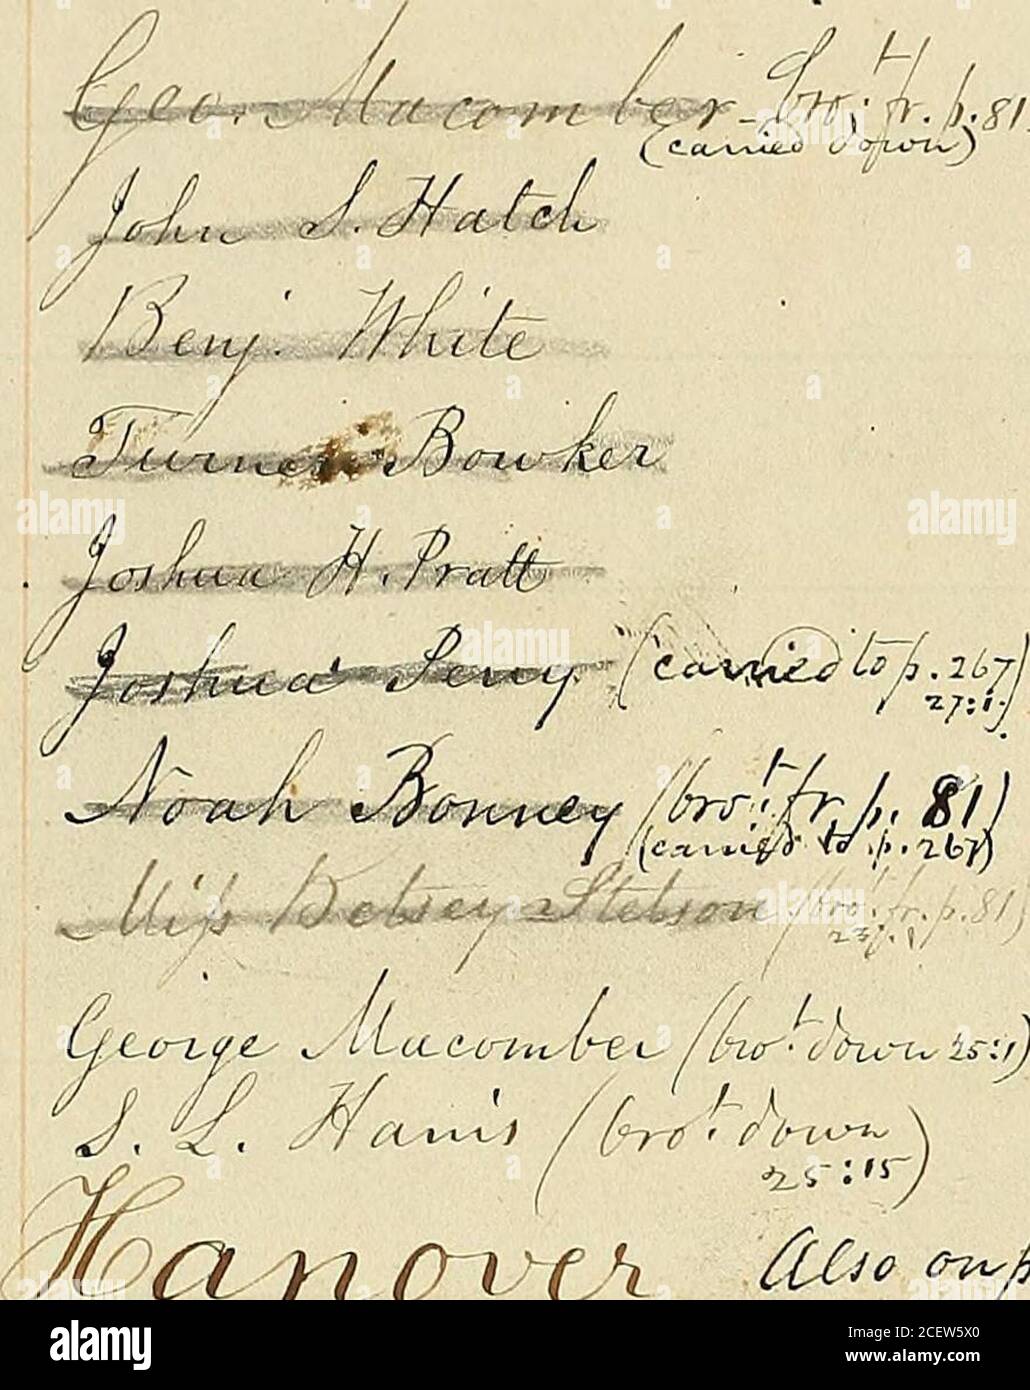 Geo. Macomber - bro't fr. p. 81.
(carried down)
John S. Hatch
Benj. White
Turner Bowker
Joshua H. Pratt
Joshua Perry (carried to p. 267
27:1.)
Noah Bonney (bro't fr. p. 81)
(carried to p. 267)
Miss Betsey Stetson (bro't fr. p. 81)
George Macomber (bro't down 25:1)
S. L. Harris (bro't down
25:15)
Hanover Also on p
alamy
Image ID: 2CEW5X0
www.alamy.com